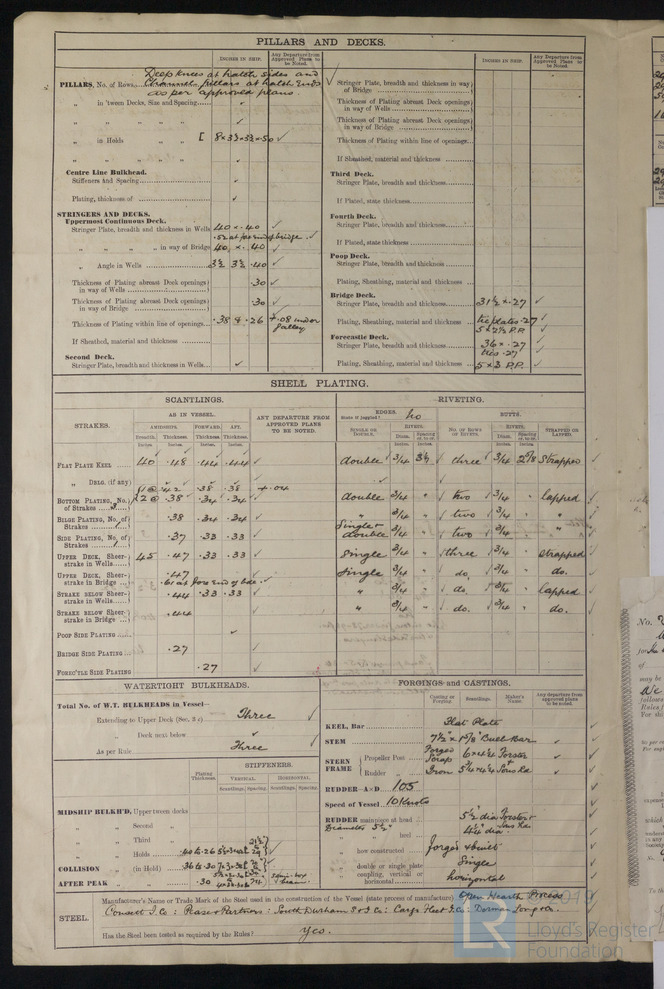 PILLARS AND DECKS.
Inches in Ship.
Any Departure from Approved Plans to be Noted.
Inches in Ship.
Any Departure from Approved Plans to be Noted.
Deep knees at hatch sides and
PILLARS, No. of Rows Channel pillars at hatch Ends
as per approved plans.
„ in 'tween Decks, Size and Spacing
„ „ „ „ „
„ in Holds „ „ [ 8 × 3½ × 3½ × .50
„ „ „ „
Centre Line Bulkhead.
Stiffeners and Spacing
Plating, thickness of
STRINGERS AND DECKS.
Uppermost Continuous Deck.
Stringer Plate, breadth and thickness in Wells 40 × .40
.52 at fore end of bridge.
„ „ „ „ in way of Bridge 40 × .40
„ Angle in Wells 3½ 3½ .40
Thickness of Plating abreast Deck openings in way of Wells .30
Thickness of Plating abreast Deck openings in way of Bridge .30
Thickness of Plating within line of openings .38 & .26 +.08 under galley
If Sheathed, material and thickness
Second Deck.
Stringer Plate, breadth and thickness in Wells
Stringer Plate, breadth and thickness in way of Bridge
Thickness of Plating abreast Deck openings in way of Wells
Thickness of Plating abreast Deck openings in way of Bridge
Thickness of Plating within line of openings
If Sheathed, material and thickness
Third Deck.
Stringer Plate, breadth and thickness
If Plated, state thickness
Fourth Deck.
Stringer Plate, breadth and thickness
If Plated, state thickness
Poop Deck.
Stringer Plate, breadth and thickness
Plating, Sheathing, material and thickness
Bridge Deck.
Stringer Plate, breadth and thickness 31½ × .27
Plating, Sheathing, material and thickness tie plates .27
5 × 2½ P.P.
Forecastle Deck.
Stringer Plate, breadth and thickness 36 × .27
ties .27
Plating, Sheathing, material and thickness 5 × 3 P.P.
SHELL PLATING.
SCANTLINGS.
RIVETING.
STRAKES.
AS IN VESSEL.
ANY DEPARTURE FROM APPROVED PLANS TO BE NOTED.
EDGES.
State if joggled? No
BUTTS.
AMIDSHIPS. FORWARD. AFT.
Breadth. Thickness. Thickness. Thickness.
SINGLE OR DOUBLE.
RIVETS.
Diam. Spacing cr. to cr.
NO. OF ROWS OF RIVETS.
RIVETS.
Diam. Spacing cr. to cr.
STRAPPED OR LAPPED.
Flat Plate Keel 40 .48 .44 .44 double 3/4 three 3/4 2 5/8 Strapped
„ Dblg. (if any)
1 @ .42 .38 .38 +.04
Bottom Plating, No. of Strakes 3 2 @ .38 .34 .34 double 3/4 „ two 3/4 „ lapped
Bilge Plating, No. of Strakes 1 .38 .34 .34 „ 3/4 „ two 3/4 „ „
Side Plating, No. of Strakes 1 .37 .33 .33 Single & double 3/4 „ two 3/4 „ „
Upper Deck, Sheerstrake in Wells 45 .47 .33 .33 Single 3/4 „ three 3/4 „ Strapped
Upper Deck, Sheerstrake in Bridge .47 Single 3/4 „ do. 3/4 „ do.
.61 at fore end of bdge.
Strake below Sheerstrake in Wells .44 .33 .33 „ 3/4 „ do. 3/4 „ lapped
Strake below Sheerstrake in Bridge .44 „ 3/4 „ do. 3/4 „ do.
Poop Side Plating
Bridge Side Plating .27
Forec'tle Side Plating .27
WATERTIGHT BULKHEADS.
Total No. of W.T. BULKHEADS in Vessel—
Extending to Upper Deck (Sec. 3 c) Three
„ Deck next below
As per Rule Three
Plating Thickness.
STIFFENERS.
VERTICAL. HORIZONTAL.
Scantlings. Spacing. Scantlings. Spacing.
MIDSHIP BULKH'D, Upper tween decks
„ „ Second „
„ „ Third „
„ „ Holds .40 to .26
COLLISION „ (in Hold) .36 to .30
AFTER PEAK „ „ .30
FORGINGS and CASTINGS.
Casting or Forging. Scantlings. Maker's Name. Any departure from approved plans to be noted.
KEEL, Bar Flat Plate
STEM 7½" × 1⅞" Bull Bar
STERN FRAME
Propeller Post Forged Scrap 6 × 4¼ Forster
Rudder „ Iron 5¼ × 4¼ & Sons Ld
RUDDER—A×D 105
Speed of Vessel 10 Knots
RUDDER mainpiece at head 5½" dia Forster &
Diameter 5½" Sons Ld.
„ „ heel 4¼ dia.
„ how constructed forged & built
„ double or single plate Single
„ coupling, vertical or horizontal horizontal
STEEL.
Manufacturer's Name or Trade Mark of the Steel used in the construction of the Vessel (state process of manufacture) Open Hearth Process
Consett I. Co: Pease & Partners: South Durham S & I Co: Cargo Fleet I. Co: Dorman Long & Co.
Has the Steel been tested as required by the Rules? Yes.
2019
LR
Lloyd's Register
Foundation